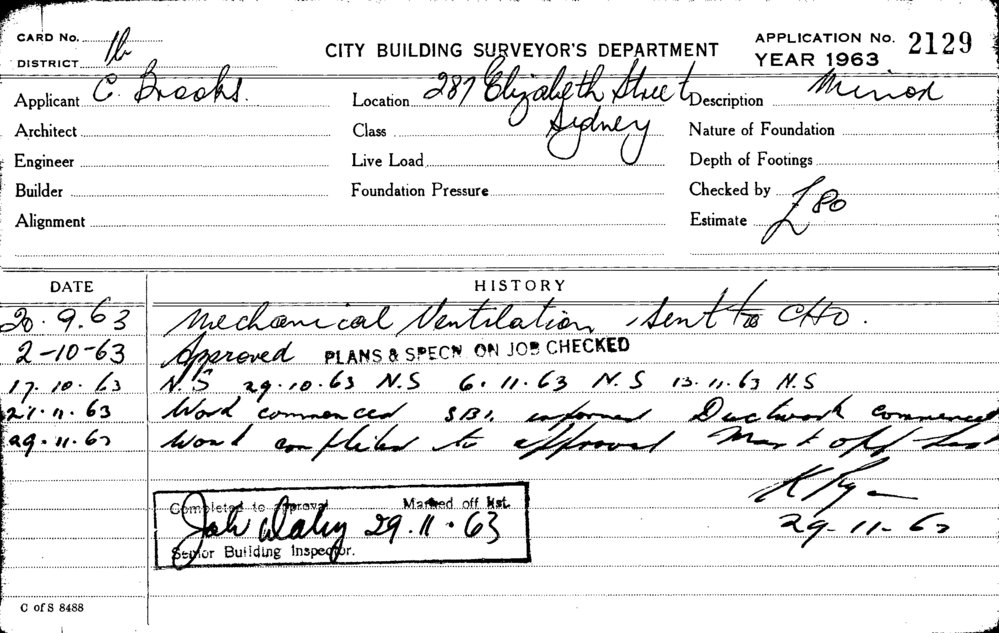 CARD No. 1b
DISTRICT
CITY BUILDING SURVEYOR'S DEPARTMENT
APPLICATION No. 2129
YEAR 1963
Applicant C. Brooks.
Location 287 Elizabeth Street
Sydney
Description Minor
Architect
Class
Nature of Foundation
Engineer
Live Load
Depth of Footings
Builder
Foundation Pressure
Checked by
Alignment
Estimate £80
DATE HISTORY
20.9.63 Mechanical Ventilation sent to CHO.
2-10-63 Approved PLANS & SPECN. ON JOB CHECKED
17.10.63 N.S 29.10.63 N.S 6.11.63 N.S 13.11.63 N.S
21.11.63 Work commenced SBI. informed Ductwork commenced
29.11.63 Work completed to approval Mark off list
29-11-63
Completed to approval Marked off list.
John Daley 29.11.63
Senior Building Inspector.
C of S 8488